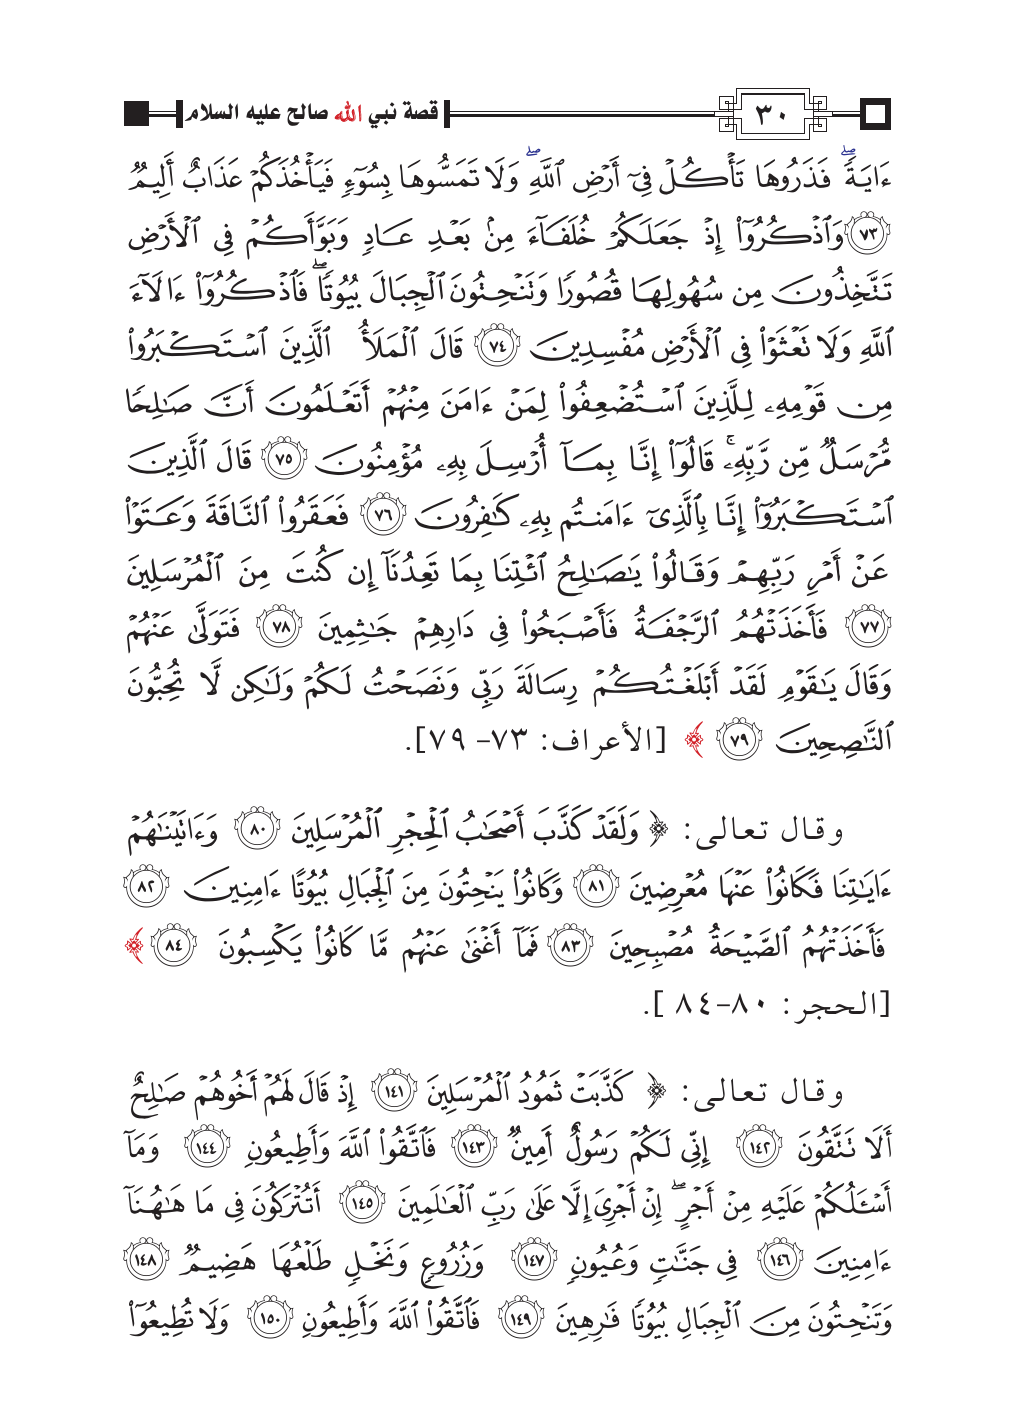 ٣٠ قصة نبي الله صالح عليه السلام
ءَايَةٗۖ فَذَرُوهَا تَأۡكُلۡ فِيٓ أَرۡضِ ٱللَّهِۖ وَلَا تَمَسُّوهَا بِسُوٓءٖ فَيَأۡخُذَكُمۡ عَذَابٌ أَلِيمٞ
٧٣ وَٱذۡكُرُوٓاْ إِذۡ جَعَلَكُمۡ خُلَفَآءَ مِنۢ بَعۡدِ عَادٖ وَبَوَّأَكُمۡ فِي ٱلۡأَرۡضِ
تَتَّخِذُونَ مِن سُهُولِهَا قُصُورٗا وَتَنۡحِتُونَ ٱلۡجِبَالَ بُيُوتٗاۖ فَٱذۡكُرُوٓاْ ءَالَآءَ
ٱللَّهِ وَلَا تَعۡثَوۡاْ فِي ٱلۡأَرۡضِ مُفۡسِدِينَ ٧٤ قَالَ ٱلۡمَلَأُ ٱلَّذِينَ ٱسۡتَكۡبَرُواْ
مِن قَوۡمِهِۦ لِلَّذِينَ ٱسۡتُضۡعِفُواْ لِمَنۡ ءَامَنَ مِنۡهُمۡ أَتَعۡلَمُونَ أَنَّ صَٰلِحٗا
مُّرۡسَلٞ مِّن رَّبِّهِۦۚ قَالُوٓاْ إِنَّا بِمَآ أُرۡسِلَ بِهِۦ مُؤۡمِنُونَ ٧٥ قَالَ ٱلَّذِينَ
ٱسۡتَكۡبَرُوٓاْ إِنَّا بِٱلَّذِيٓ ءَامَنتُم بِهِۦ كَٰفِرُونَ ٧٦ فَعَقَرُواْ ٱلنَّاقَةَ وَعَتَوۡاْ
عَنۡ أَمۡرِ رَبِّهِمۡ وَقَالُواْ يَٰصَٰلِحُ ٱئۡتِنَا بِمَا تَعِدُنَآ إِن كُنتَ مِنَ ٱلۡمُرۡسَلِينَ
٧٧ فَأَخَذَتۡهُمُ ٱلرَّجۡفَةُ فَأَصۡبَحُواْ فِي دَارِهِمۡ جَٰثِمِينَ ٧٨ فَتَوَلَّىٰ عَنۡهُمۡ
وَقَالَ يَٰقَوۡمِ لَقَدۡ أَبۡلَغۡتُكُمۡ رِسَالَةَ رَبِّي وَنَصَحۡتُ لَكُمۡ وَلَٰكِن لَّا تُحِبُّونَ
ٱلنَّٰصِحِينَ ٧٩ ﴾ [الأعراف: ٧٣- ٧٩].
وقال تعالى: ﴿ وَلَقَدۡ كَذَّبَ أَصۡحَٰبُ ٱلۡحِجۡرِ ٱلۡمُرۡسَلِينَ ٨٠ وَءَاتَيۡنَٰهُمۡ
ءَايَٰتِنَا فَكَانُواْ عَنۡهَا مُعۡرِضِينَ ٨١ وَكَانُواْ يَنۡحِتُونَ مِنَ ٱلۡجِبَالِ بُيُوتًا ءَامِنِينَ ٨٢
فَأَخَذَتۡهُمُ ٱلصَّيۡحَةُ مُصۡبِحِينَ ٨٣ فَمَآ أَغۡنَىٰ عَنۡهُم مَّا كَانُواْ يَكۡسِبُونَ ٨٤ ﴾
[الحجر: ٨٠-٨٤ ].
وقال تعالى: ﴿ كَذَّبَتۡ ثَمُودُ ٱلۡمُرۡسَلِينَ ١٤١ إِذۡ قَالَ لَهُمۡ أَخُوهُمۡ صَٰلِحٌ
أَلَا تَتَّقُونَ ١٤٢ إِنِّي لَكُمۡ رَسُولٌ أَمِينٞ ١٤٣ فَٱتَّقُواْ ٱللَّهَ وَأَطِيعُونِ ١٤٤ وَمَآ
أَسۡـَٔلُكُمۡ عَلَيۡهِ مِنۡ أَجۡرٍۖ إِنۡ أَجۡرِيَ إِلَّا عَلَىٰ رَبِّ ٱلۡعَٰلَمِينَ ١٤٥ أَتُتۡرَكُونَ فِي مَا هَٰهُنَآ
ءَامِنِينَ ١٤٦ فِي جَنَّٰتٖ وَعُيُونٖ ١٤٧ وَزُرُوعٖ وَنَخۡلٖ طَلۡعُهَا هَضِيمٞ ١٤٨
وَتَنۡحِتُونَ مِنَ ٱلۡجِبَالِ بُيُوتٗا فَٰرِهِينَ ١٤٩ فَٱتَّقُواْ ٱللَّهَ وَأَطِيعُونِ ١٥٠ وَلَا تُطِيعُوٓاْ